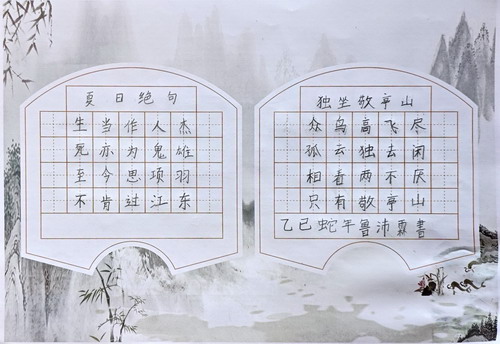 夏日绝句
生当作人杰
死亦为鬼雄
至今思项羽
不肯过江东
独坐敬亭山
众鸟高飞尽
孤云独去闲
相看两不厌
只有敬亭山
乙巳蛇年鲁沛霖書